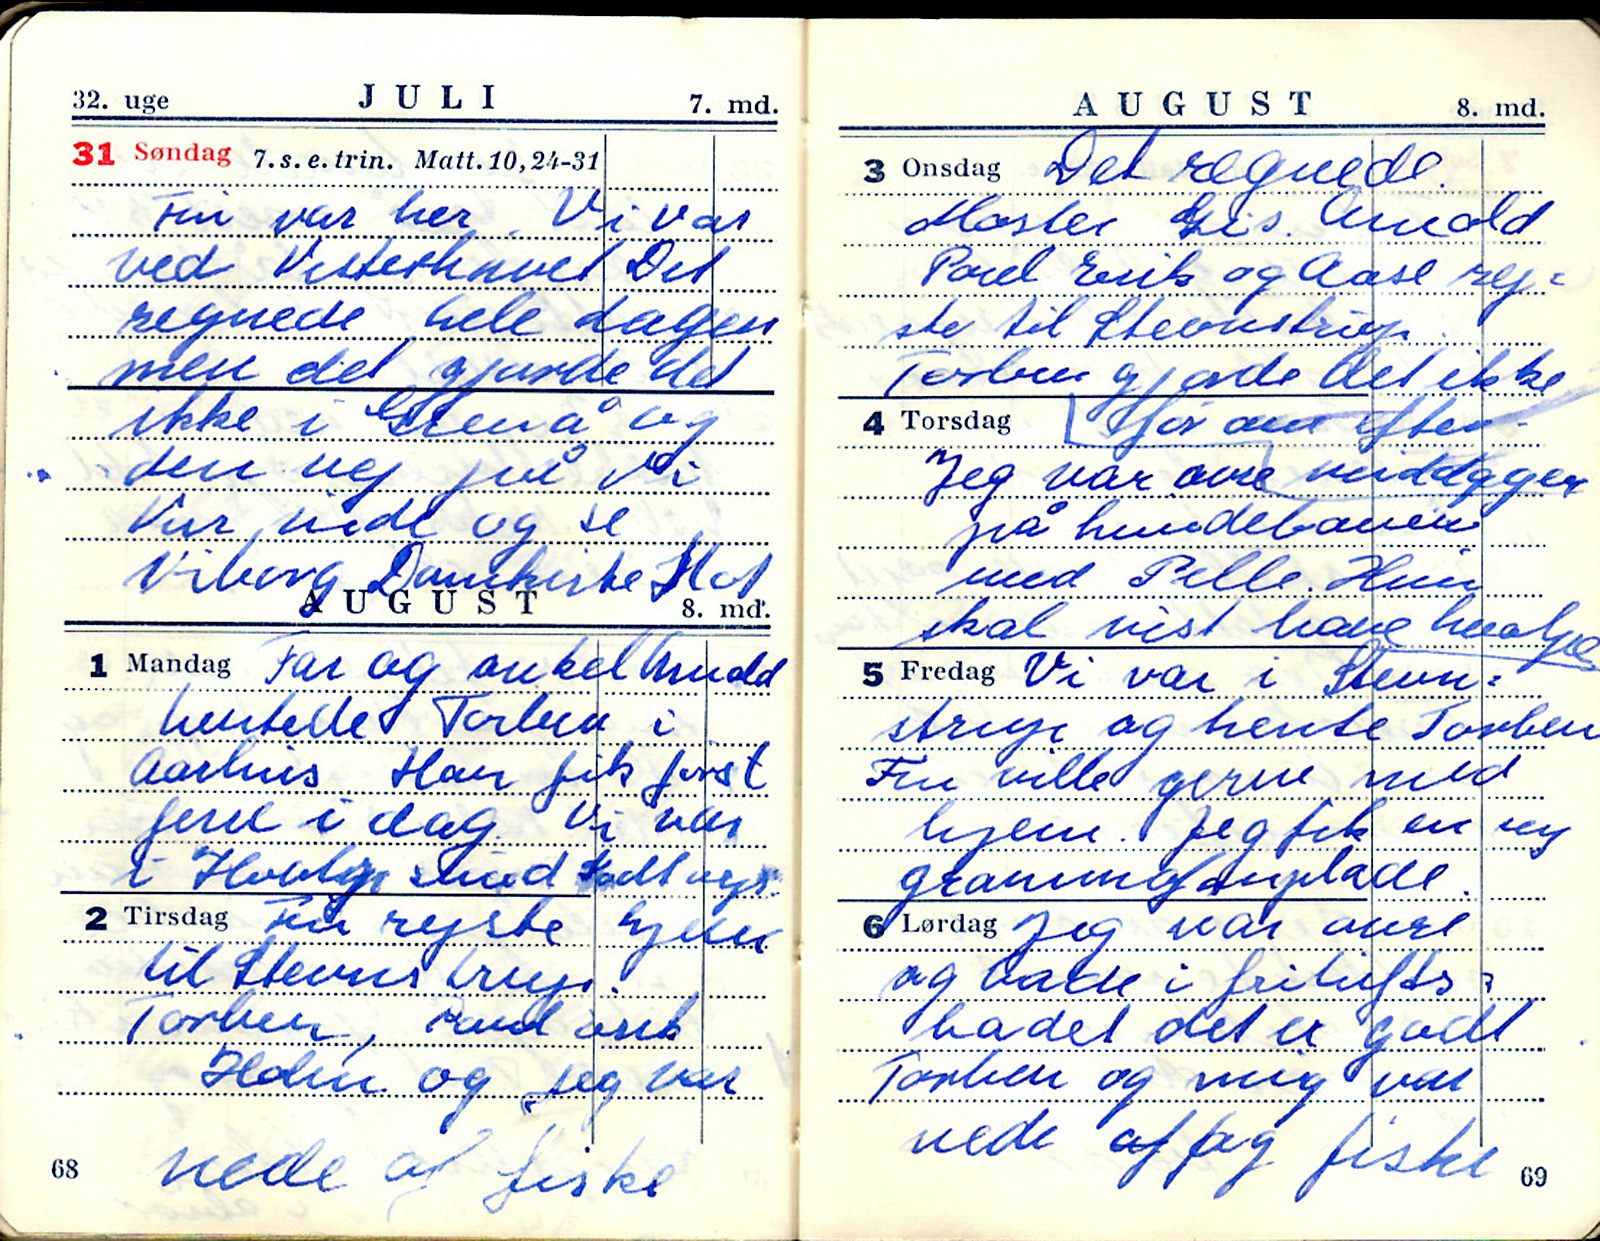 32. uge JULI 7. md.
31 Søndag 7. s. e. trin. Matt. 10, 24-31
Fin var her. Vi var
ved Vesterhavet Det
regnede hele dagen
men det gjorde det
ikke i Grenå og
den vej på Vi
Var inde og se
Viborg Domkirke Slot
AUGUST 8. md.
1 Mandag Far og onkel Arnold
hentede Torben i
Aarhus Han fik først
ferie i dag. Vi var
i
2 Tirsdag Fin rejste hjem
til Stevnstrup.
Torben, Poul erik
Holm og jeg var
nede at fiske
68
AUGUST 8. md.
3 Onsdag Det regnede.
Moster Gis. Arnold
Poul Erik og Aase rej=
ste til Stevnstrup.
Torben gjorde det ikke
4 Torsdag før om efter-
Jeg var ovre middagen
på hundebanen
med Pelle. Hun
skal vist have hvalpe
5 Fredag Vi var i Stevn=
strup og hente Torben
Fin ville gerne med
hjem. Jeg fik en ny
grammofonplade.
6 Lørdag Jeg var ovre
og bade i frilufts=
badet det er godt
Torben og mig var
nede at fiske
69